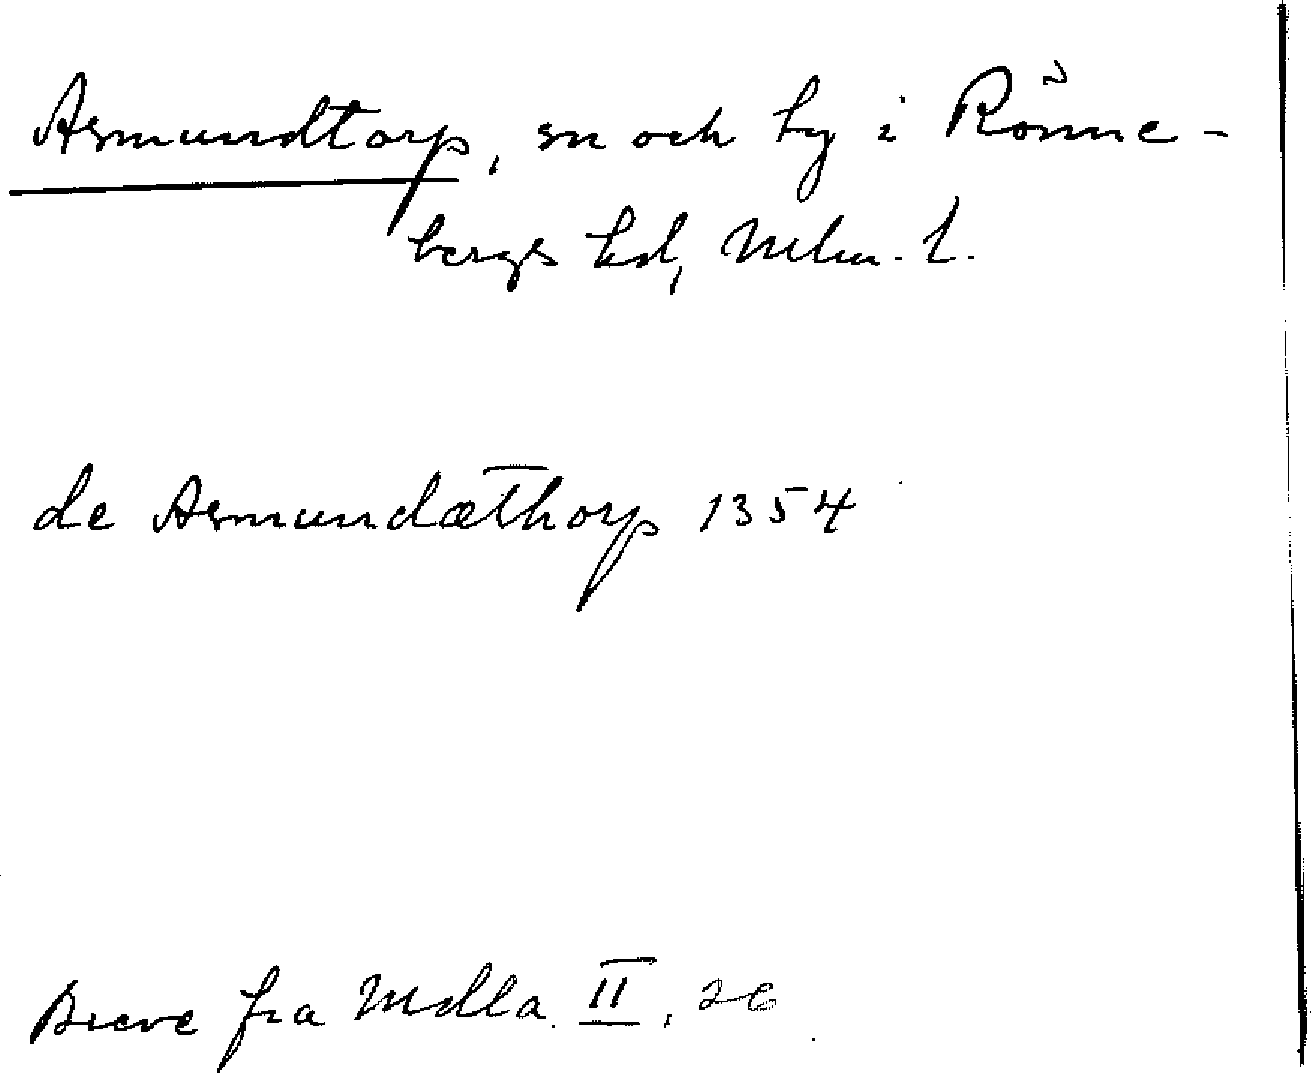 Asmundtorp, sn och by i Rönne-
bergs hd, Mlm. l.
de Asmundæthorp 1354
Breve fra Mdlla. II, 26